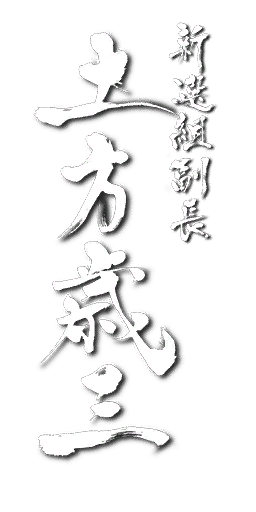 新選組副長
土方歳三